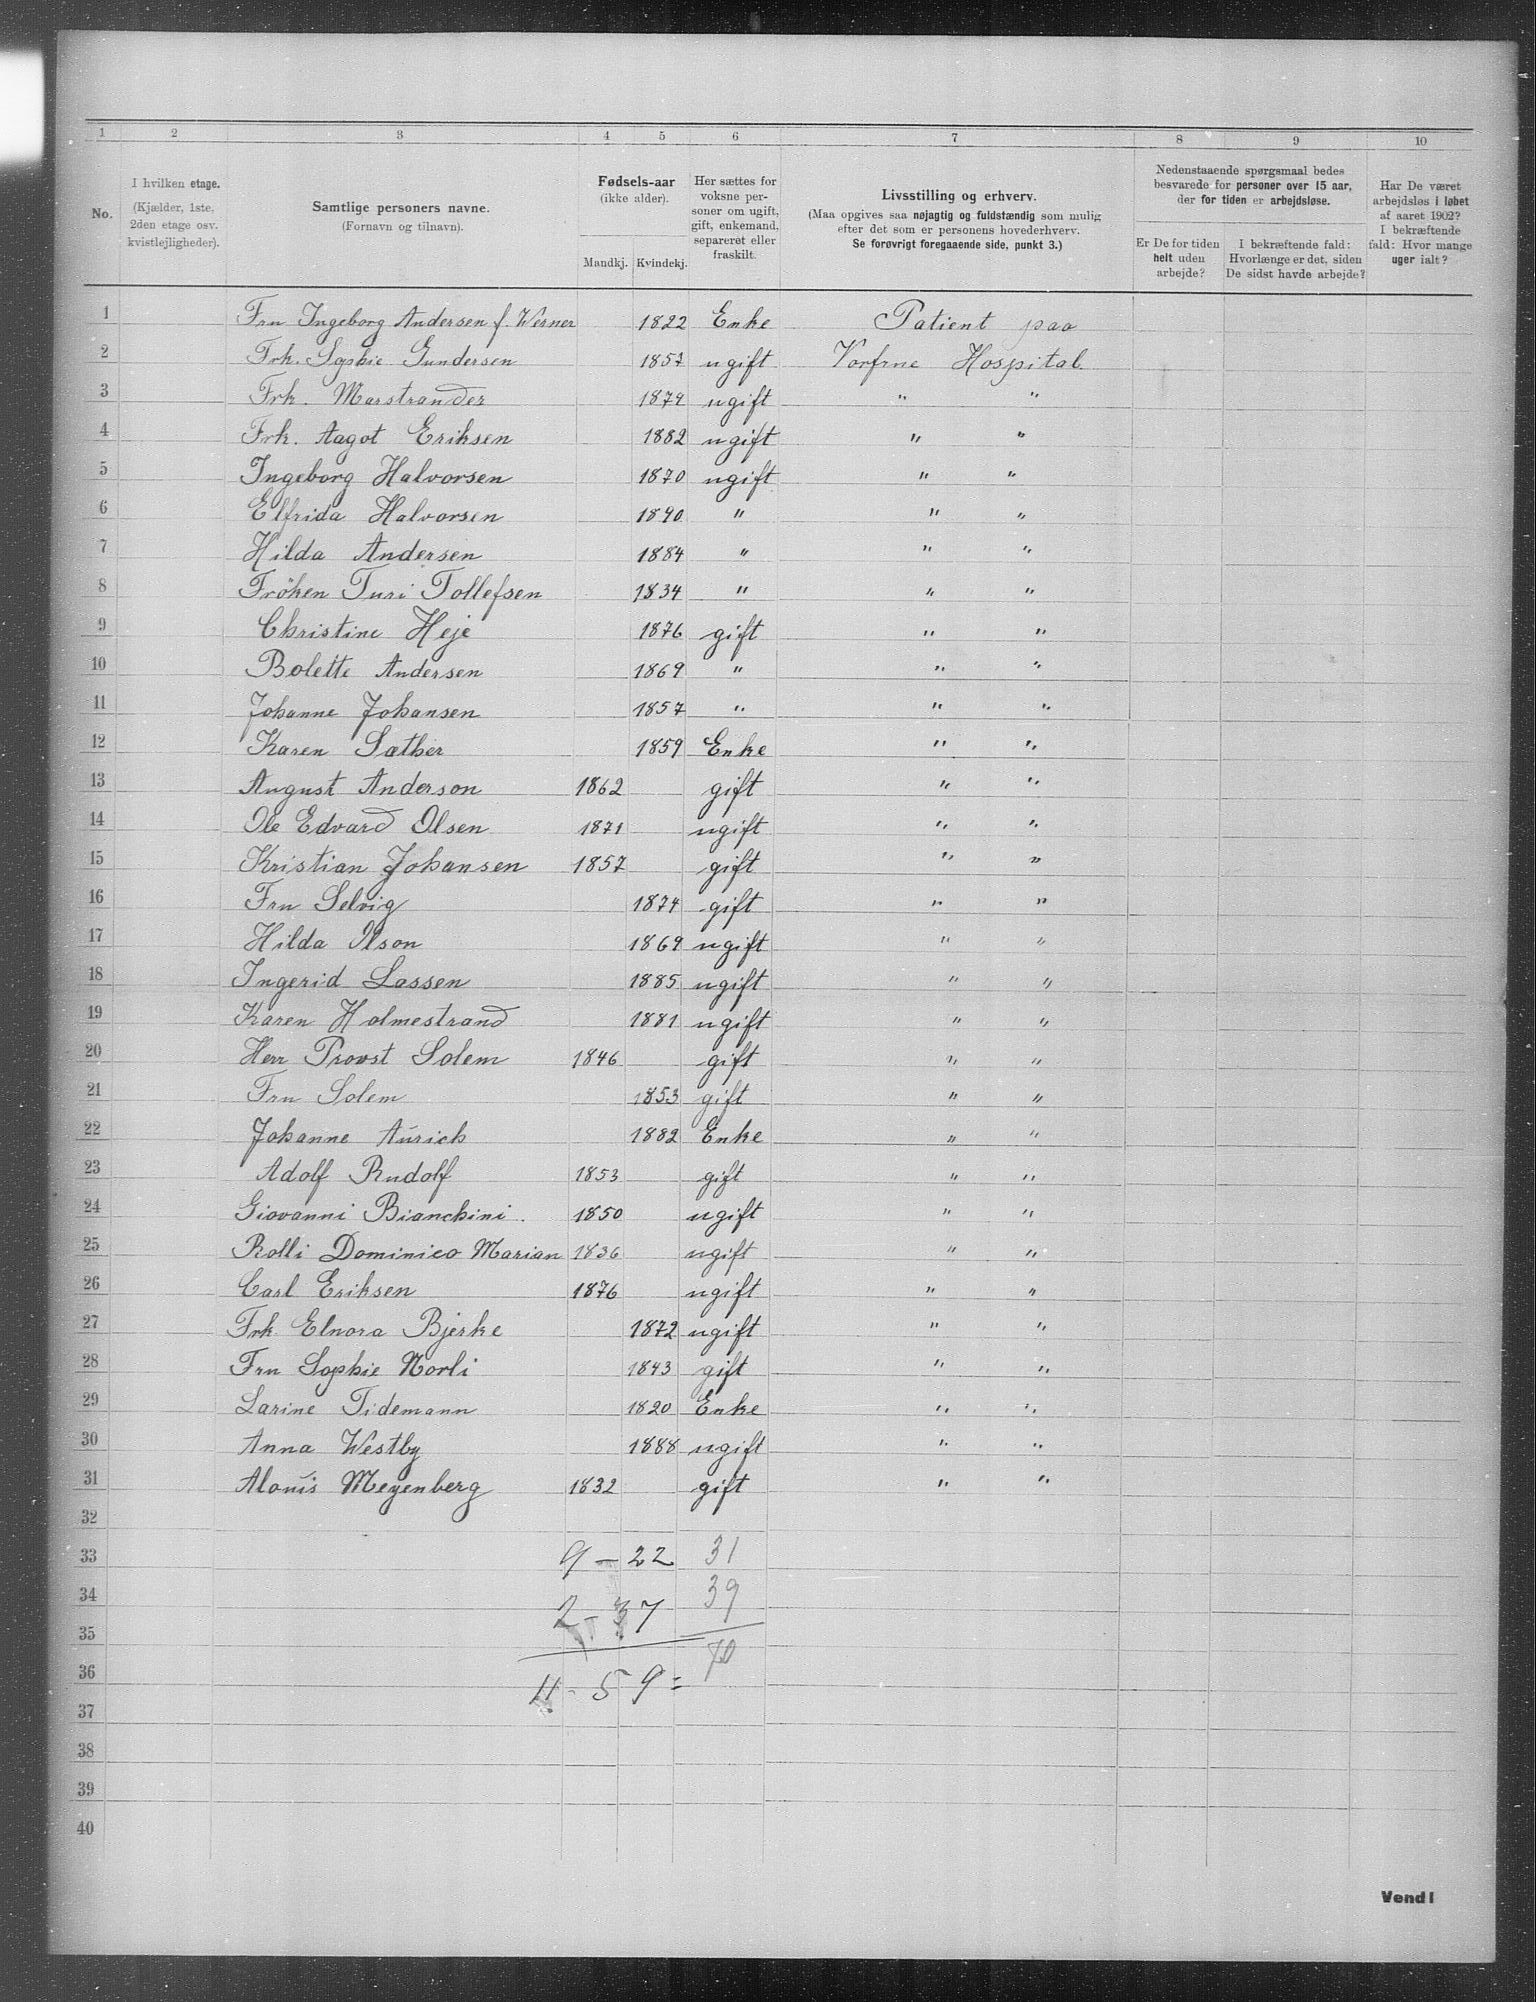 1 2 3 4 5 6 7 8 9 10
No. I hvilken etage. (Kjælder, 1ste, 2den etage osv. kvistlejligheder).
Samtlige personers navne. (Fornavn og tilnavn).
Fødsels-aar (ikke alder). Mandkj. Kvindekj.
Her sættes for voksne personer om ugift, gift, enkemand, separeret eller fraskilt.
Livsstilling og erhverv. (Maa opgives saa nøjagtig og fuldstændig som mulig efter det som er personens hovederhverv. Se forøvrigt foregaaende side, punkt 3.)
Nedenstaaende spørgsmaal bedes besvarede for personer over 15 aar, der for tiden er arbejdsløse.
Er De for tiden helt uden arbejde?
I bekræftende fald: Hvorlænge er det, siden De sidst havde arbejde?
Har De været arbejdsløs i løbet af aaret 1902? I bekræftende fald: Hvor mange uger ialt?
1 Fru Ingeborg Andersen f. Werner 1822 Enke Patient paa
2 Frk. Sophie Gundersen 1857 ugift Vorfrue Hospital.
3 Frk. Marstrander 1879 ugift " "
4 Frk. Aagot Eriksen 1882 ugift " "
5 Ingeborg Halvorsen 1870 ugift " "
6 Elfrida Halvorsen 1890 " " "
7 Hilda Andersen 1884 " " "
8 Fröken Turi Tollefsen 1834 " " "
9 Christine Heje 1876 gift " "
10 Bolette Andersen 1869 " " "
11 Johanne Johansen 1857 " " "
12 Karen Sæther 1859 Enke " "
13 August Anderson 1862 gift " "
14 Ole Edvard Olsen 1871 ugift " "
15 Kristian Johansen 1857 gift " "
16 Fru Selvig 1874 gift " "
17 Hilda Olson 1869 ugift " "
18 Ingerid Lassen 1885 ugift " "
19 Karen Holmestrand 1881 ugift " "
20 Herr Provst Solem 1846 gift " "
21 Fru Solem 1853 gift " "
22 Johanne Aurich 1882 Enke " "
23 Adolf Rudolf 1853 gift " "
24 Giovanni Bianchini. 1850 ugift " "
25 Rolli Dominico Marian 1836 ugift " "
26 Carl Eriksen 1876 ugift " "
27 Frk. Elnora Bjerke 1872 ugift " "
28 Fru Sophie Norli 1843 gift " "
29 Larine Tidemann 1820 Enke " "
30 Anna Westby 1888 ugift " "
31 Alouis Meyenberg 1832 gift " "
32
33 9 - 22 31
34 2 - 37 39
35
36 11 - 59 = 70
37
38
39
40
Vend!